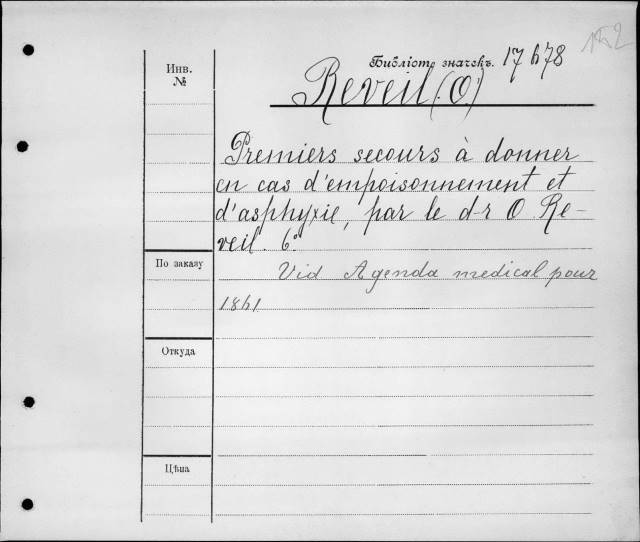 Инв.
№
Библіот. значекъ. 17 h 78
Reveil (O.)
Premiers secours à donner
en cas d'empoisonnement et
d'asphyxie, par le d-r O. Re-
veil. 6º.
По заказу
Vid Agenda medical pour
1861
Откуда
Цѣна